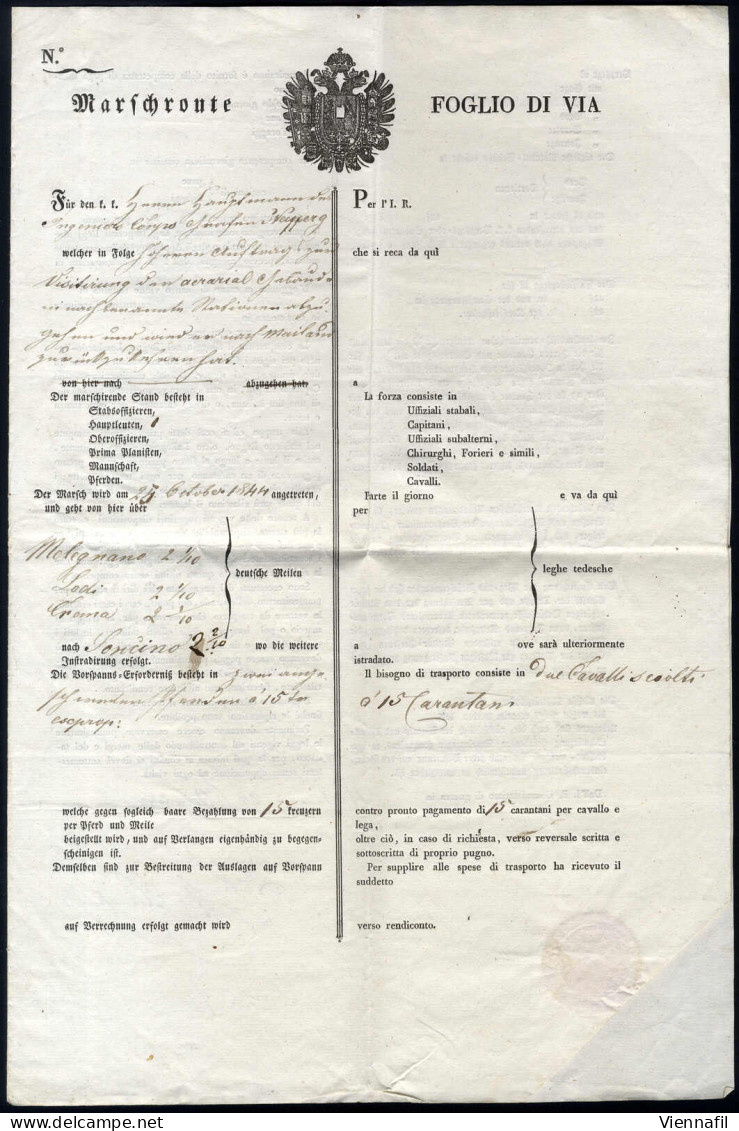 N.º
Marschroute
FOGLIO DI VIA
Für den k. k. Herrn Hauptmann des
Ingenieur Corps Grafen
welcher in Folge höheren Auftrags zur
Visitirung der aerarial Gebäude
in nachbenannte Stationen abzu
gehen und wieder nach Mailand
zurückzukehren hat.
von hier nach abzugehen hat.
Der marschirende Stand besteht in
Stabsoffizieren,
Hauptleuten, 1
Oberoffizieren,
Prima Planisten,
Mannschaft,
Pferden.
Der Marsch wird am October 1844 angetreten,
und geht von hier über
Melegnano 2 1/10
Lodi 2 1/10
Crema 2 1/10
deutsche Meilen
nach Soncino 2 2/10 wo die weitere
Instradirung erfolgt.
Die Vorspanns-Erforderniß besteht in zwei
Pferden á 15
welche gegen sogleich baare Bezahlung von 15 kreuzern
per Pferd und Meile
beigestellt wird, und auf Verlangen eigenhändig zu begegen-
scheinigen ist.
Demselben sind zur Bestreitung der Auslagen auf Vorspann
auf Verrechnung erfolgt gemacht wird
Per l'I. R.
che si reca da quì
a
La forza consiste in
Uffiziali stabali,
Capitani,
Uffiziali subalterni,
Chirurghi, Forieri e simili,
Soldati,
Cavalli.
Parte il giorno e va da quì
per
leghe tedesche
a ove sarà ulteriormente
istradato.
Il bisogno di trasporto consiste in due Cavalli sciolti
á 15 Carantani
contro pronto pagamento di 15 carantani per cavallo e
lega,
oltre ciò, in caso di richiesta, verso reversale scritta e
sottoscritta di proprio pugno.
Per supplire alle spese di trasporto ha ricevuto il
suddetto
verso rendiconto.
Viennafil